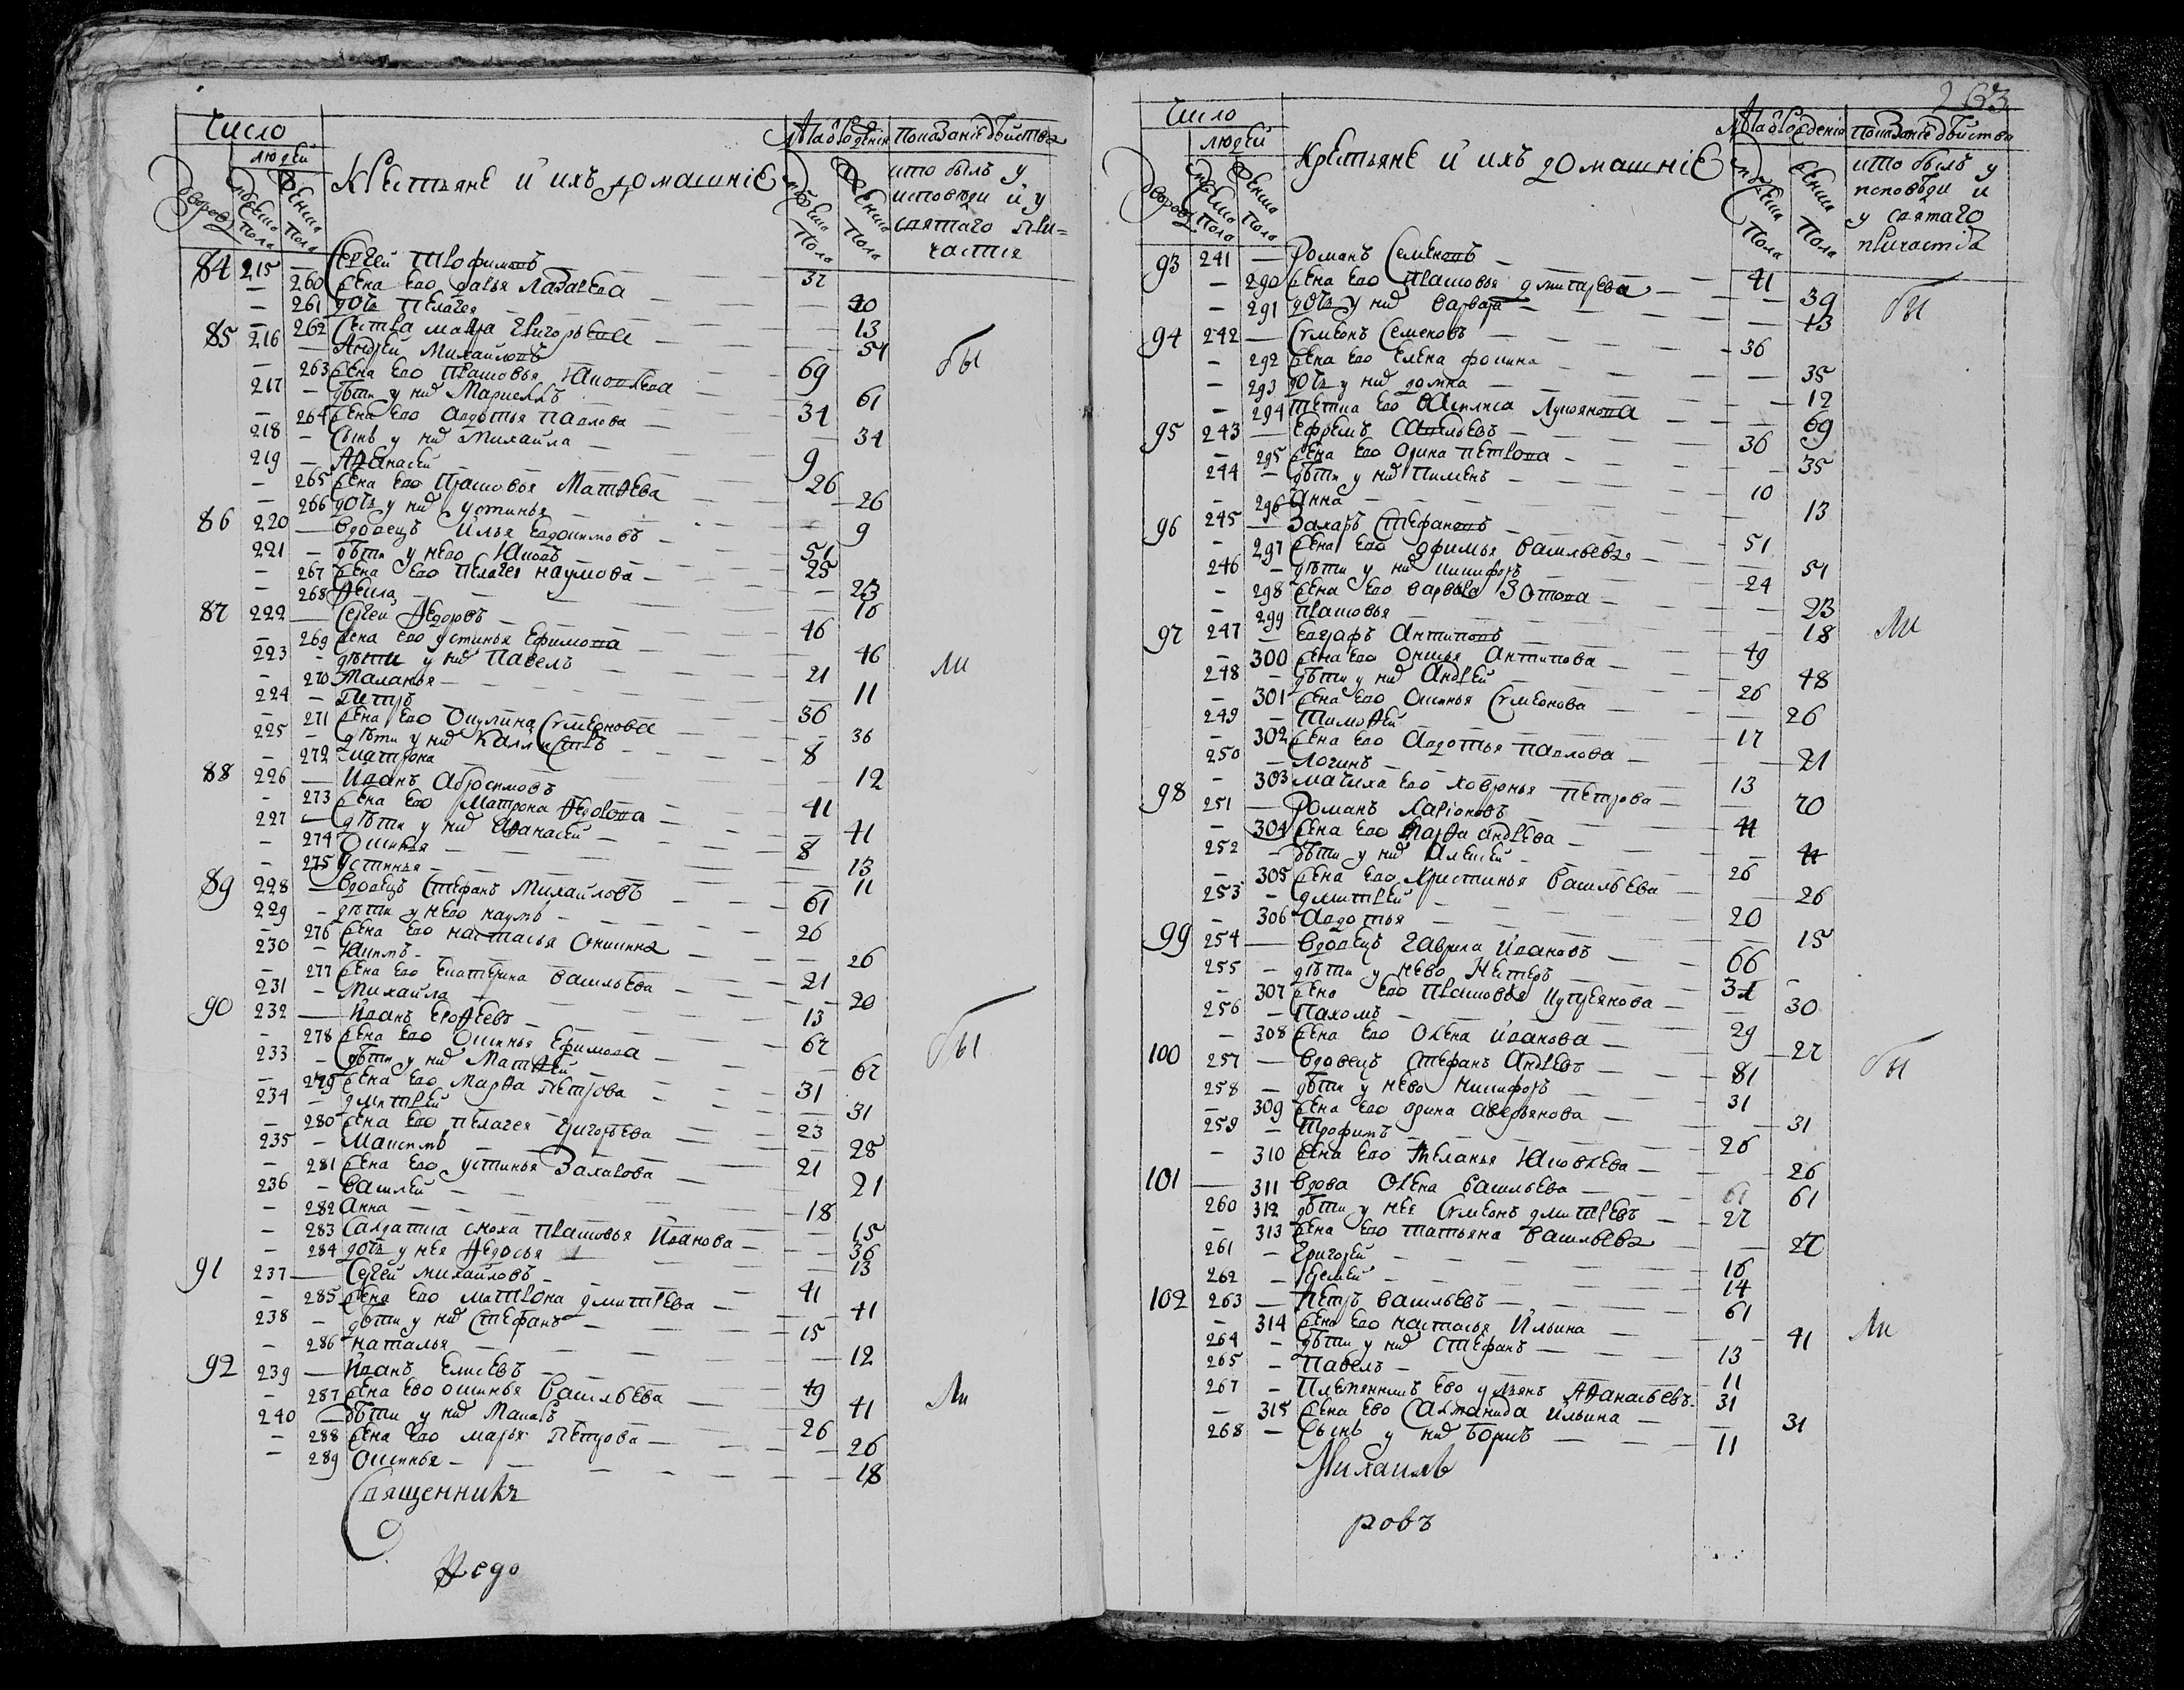 Число
людей
Крестьяне и ихъ домашніе
Лѣта от рожденія
Показаніе дѣйства
дворовъ
мужеска пола
женска пола
мужеска пола
женска пола
кто былъ у
исповѣди и у
святаго при=
частія
84 215 — Сергей Трофимовъ 37
— 260 Жена ево Дарья Лазарева 40
— 261 дочь Пелагея 13
— 262 Сестра Мавра Григорьева 54
85 216 — Андрей Михайловъ 69 бы
— 263 Жена ево Прасковья Яковлева 61
217 — дѣти у нихъ 34
— 264 Жена ево Авдотья Павлова 34
218 — Сынъ у нихъ Михайла 9
219 — Аѳанасей 26
— 265 Жена ево Прасковья Матѳева 26
— 266 дочь у нихъ Устинья 9
86 220 — Вдовецъ Илья Евдокимовъ 51
221 — дѣти у нево Яковъ 25
— 267 Жена ево Пелагея Наумова 23
— 268 Ѳекла 16
87 222 — Сергей Ѳедоровъ 46
— 269 Жена ево Устинья Ефимова 46
223 — дѣти у нихъ Павелъ 21 ли
— 270 Маланья 11
224 — Петръ 36
— 271 Жена ево Окулина Сѵмеонова 36
225 — дѣти у нихъ Каллистръ 8
— 272 Матрона 12
88 226 — Иванъ Абросимовъ 41
— 273 Жена ево Матрона Ѳедорова 41
227 — дѣти у нихъ Аѳанасей 8
— 274 Оксинья 13
— 275 Устинья 11
89 228 — Вдовецъ Стефанъ Михайловъ 61
229 — дѣти у нево Наумъ 26
— 276 Жена ево Настасья Оникина 26
230 — Якимъ 21
— 277 Жена ево Екатерина Васильева 20
231 — Михайла 13
90 232 — Иванъ Ероѳеевъ 67 бы
— 278 Жена ево Оксинья Ефимова 67
233 — дѣти у нихъ Матѳей 31
— 279 Жена ево Марѳа Петрова 31
234 — Дмитрей 23
— 280 Жена ево Пелагея Григорьева 28
235 — Максимъ 21
— 281 Жена ево Устинья Захарова 21
236 — Василей 18
— 282 Анна 15
— 283 Салдатка сноха Прасковья Иванова 36
— 284 дочь у нея Ѳедосья 13
91 237 — Сергей Михайловъ 41
— 285 Жена ево Матрона Дмитрева 41
238 — дѣти у нихъ Стефанъ 15
— 286 Наталья 12
92 239 — Иванъ Елисѣевъ 49
— 287 Жена ево Оксинья Васильева 41 Ли
240 — дѣти у нихъ Макаръ 26
— 288 Жена ево Марья Петрова 26
— 289 Оксинья 18
Священникъ
Ѳедо
263
Число
людей
Крестьяне и ихъ домашніе
Лѣта от рожденія
Показаніе дѣйства
дворовъ
мужеска пола
женска пола
мужеска пола
женска пола
кто былъ у
исповѣди и
у святаго
причастія
93 241 — Романъ Семеновъ 41
— 290 Жена ево Прасковья Дмитрева 39 бы
— 291 дочь у нихъ Варвара 13
94 242 — Сѵмеонъ Семеновъ 36
— 292 Жена ево Елена Фокина 35
— 293 дочь у нихъ Домна 12
— 294 тетка ево Василиса Лукоянова 69
95 243 — Ефремъ Савельевъ 36
— 295 Жена ево Орина Петрова 35
244 — дѣти у нихъ Пименъ 10
— 296 Анна 13
96 245 — Захаръ Стефановъ 51
— 297 Жена ево Афимья Васильева 51
246 — дѣти у нихъ Никифоръ 24
— 298 Жена ево Варвара Зотова 23
— 299 Прасковья 18
97 247 — Евграфъ Антиповъ 49 Ли
— 300 Жена ево Оксинья Антипова 48
248 — дѣти у нихъ Андрей 26
— 301 Жена ево Оксинья Сѵмеонова 26
249 — Тимоѳей 17
— 302 Жена ево Авдотья Павлова 21
250 — Логинъ 13
— 303 мачиха ево Ховронья Петрова 70
98 251 — Романъ Ларіоновъ 41
— 304 Жена ево Марѳа Андрева 41
252 — дѣти у нихъ Алексей 26
— 305 Жена ево Христинья Васильева 26
253 — Дмитрей 20
— 306 Авдотья 15
99 254 — Вдовецъ Гаврила Ивановъ 66
255 — дѣти у нево Нестеръ 31
— 307 Жена ево Прасковья Купреянова 30
256 — Пахомъ 29
— 308 Жена ево Олена Иванова 27
100 257 — Вдовецъ Стефанъ Андревъ 81 бы
258 — дѣти у нево Никифоръ 31
— 309 Жена ево Орина Аверьянова 31
259 — Трофимъ 26
— 310 Жена ево Меланья Яковлева 26
101 — 311 Вдова Олена Васильева 61 61
260 312 дѣти у нея Сѵмеонъ Дмитревъ 27
— 313 Жена ево Татьяна Васильева 27
261 — Григорей 16
262 — Ѳ 14
102 263 — Петръ Васильевъ 61
— 314 Жена ево Настасья Ильина 41 Ли
264 — дѣти у нихъ Стефанъ 13
265 — Павелъ 11
267 — Племянникъ ево Ульянъ Аѳанасьевъ 31
— 315 Жена ево Саломанида Ильина 31
268 — Сынъ у нихъ Борисъ 11
Михаилъ
ровъ